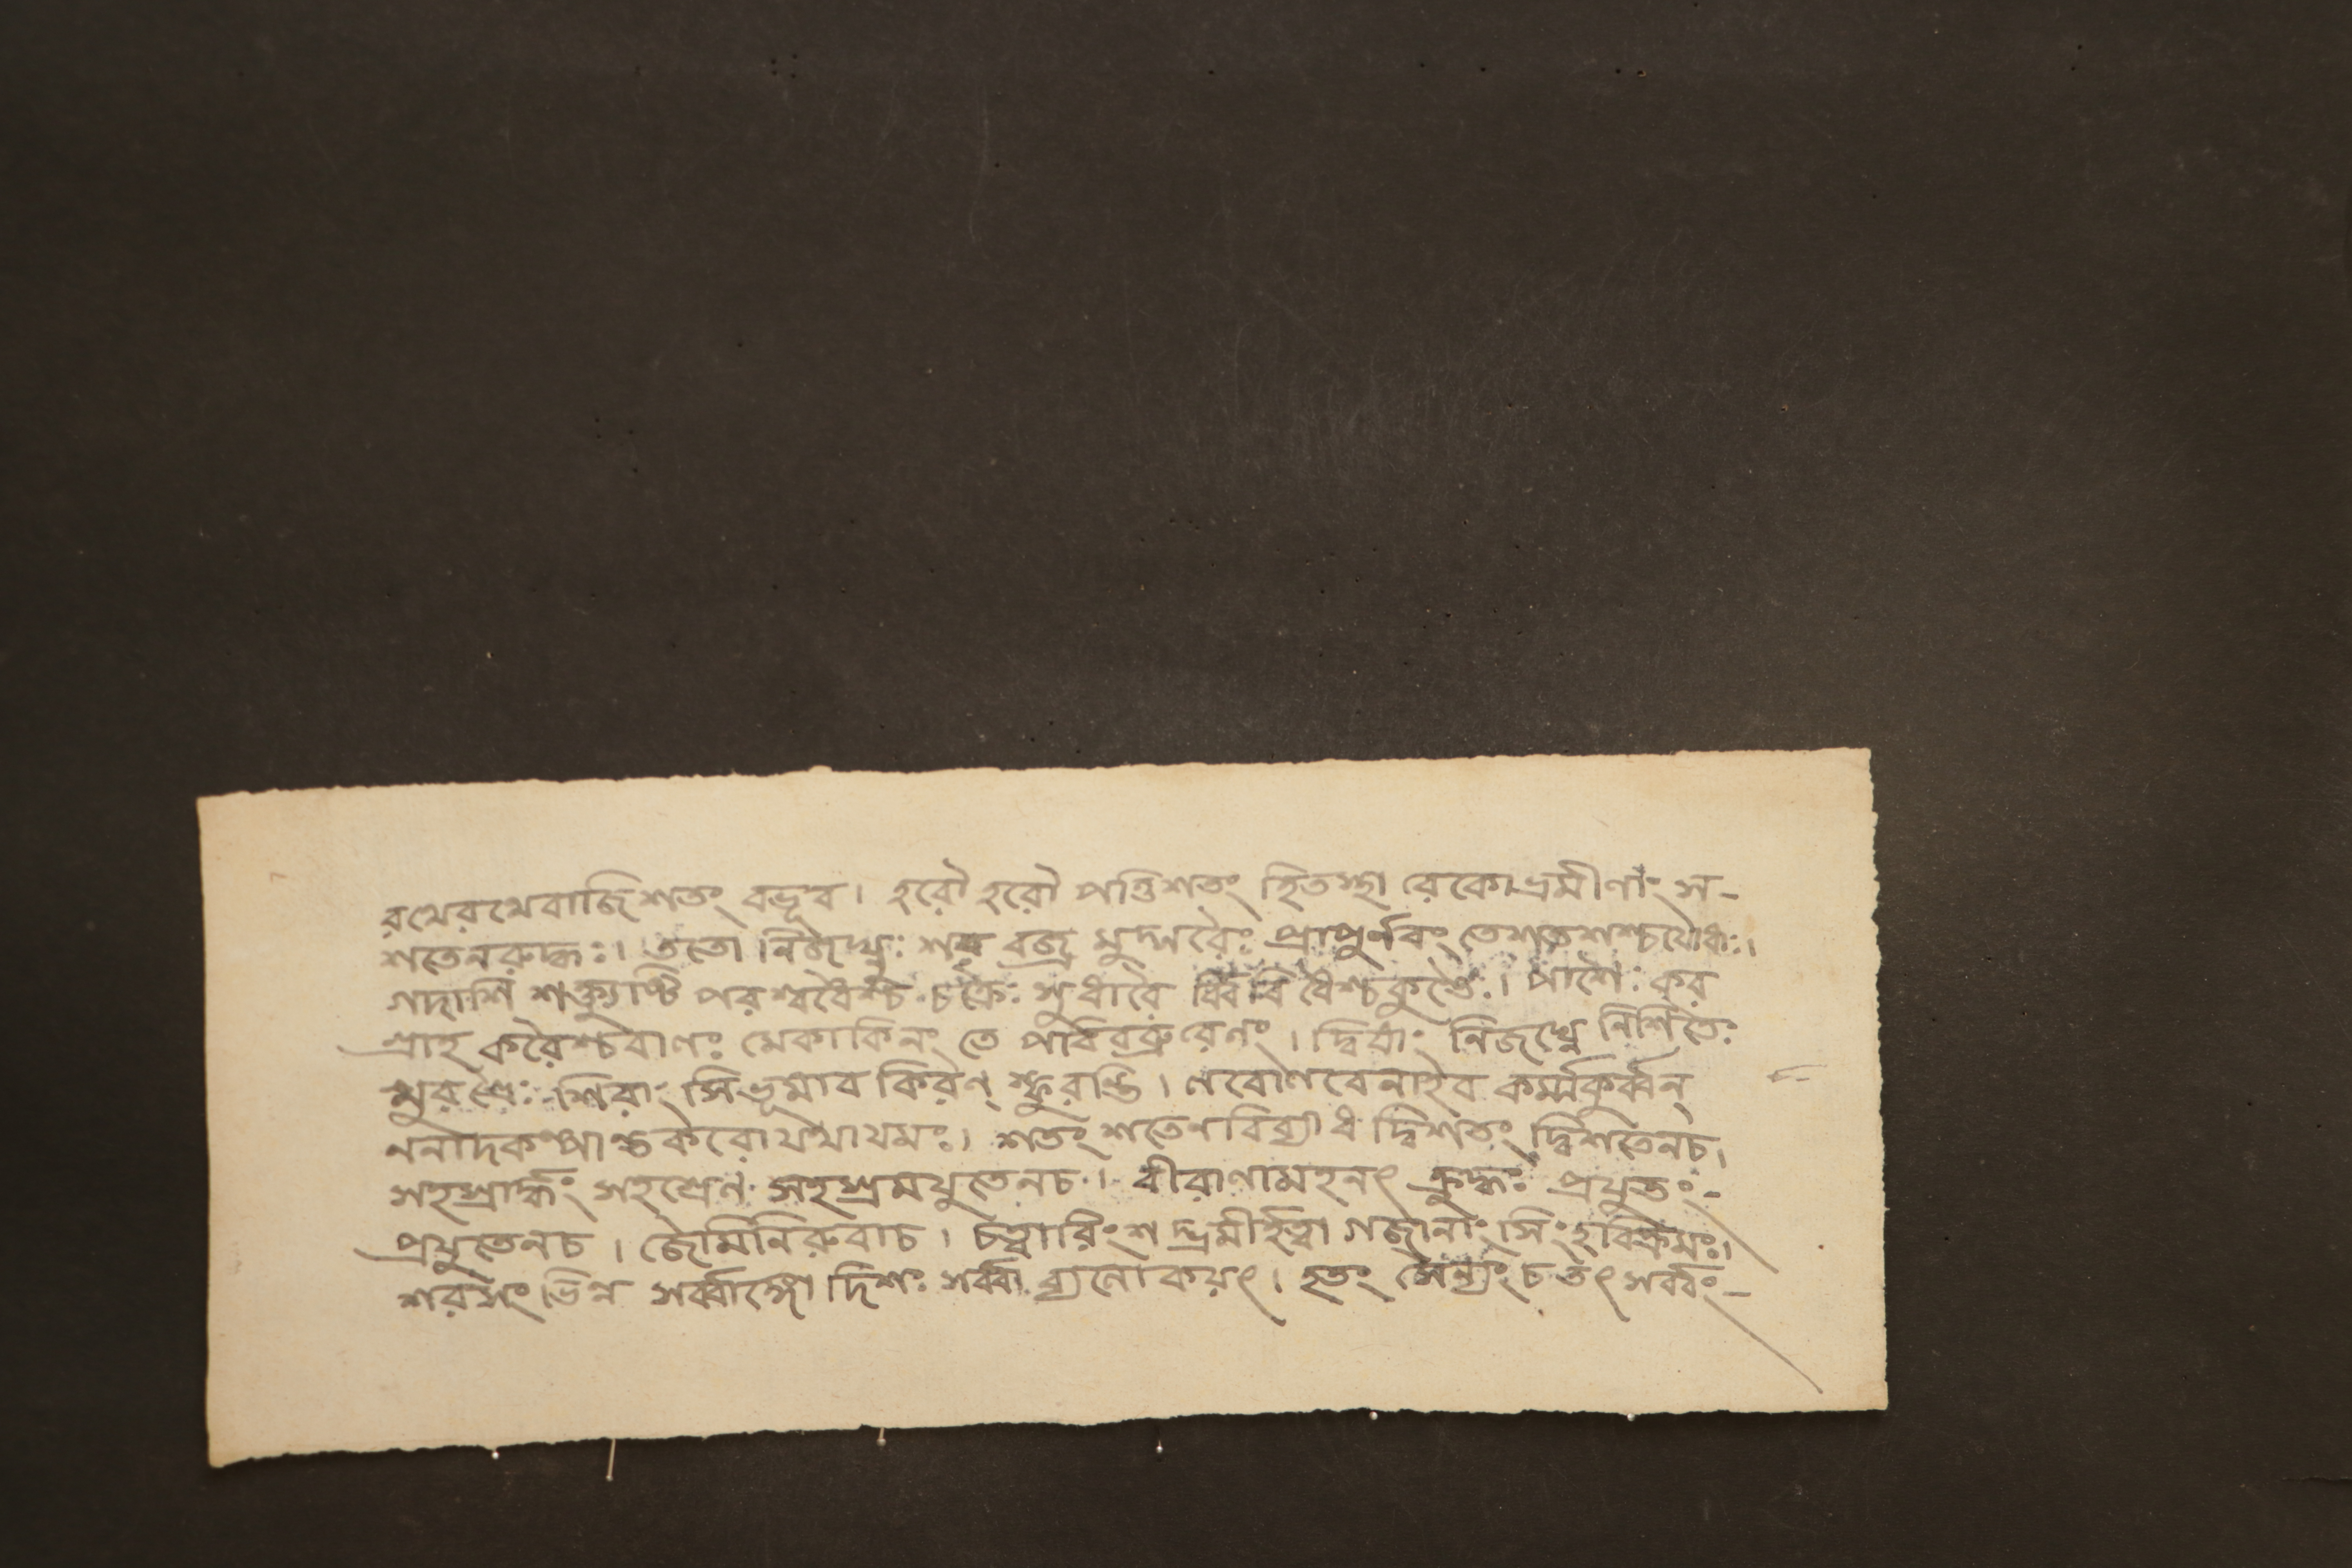 রথেরথেবাজিশতং বভূব। হরৌ হরৌ পত্তিশতং হিতস্থা রেকো ভ্রমীণাং স-
শতেনরুদ্ধঃ। ততো নিজঘ্নুঃ শর বজ্র মুদ্গরৈঃ প্রাপুর্ণবং তেশতশশ্চযোধাঃ।
গদাশি শক্ত্যৃষ্টি পরশ্বধৈশ্চ চক্রৈঃ সুধারৈ র্ব্বিবিধৈশ্চকুণ্ঠৈঃ। পাশৈঃ কর
গ্রাহ করৈশ্চবাণঃ মেকাকিনং তে পরিবব্রুরেণং। দ্বিষাং নিজঘ্নে নিশিতৈঃ
ক্ষুরপ্রৈঃ শিরাং সিভূমাব কিরণ্ স্ফুরন্তি। ণরোণবেনাইব কর্ম্মকুর্ব্বন্
ননাদকল্পান্তকরোযথাযমঃ। শতং শতেণবিব্যাধ দ্বিশতং দ্বিশতেনচ।
সহস্রার্দ্ধং সহস্রেণ সহস্রমযুতেনচ। বীরাণামহনৎ ক্রুদ্ধঃ প্রযুতং-
প্রযুতেনচ। জৈমিনিরুবাচ। চত্বারিংশ দ্ভ্রমীর্হত্বা গজানাং সিংহবিক্রমঃ।
শরসংভিন্ন সর্ব্বাঙ্গো দিশঃ সর্ব্বা ব্যলোকয়ৎ। হতং সৈন্যং চ তৎ সর্ব্বং-